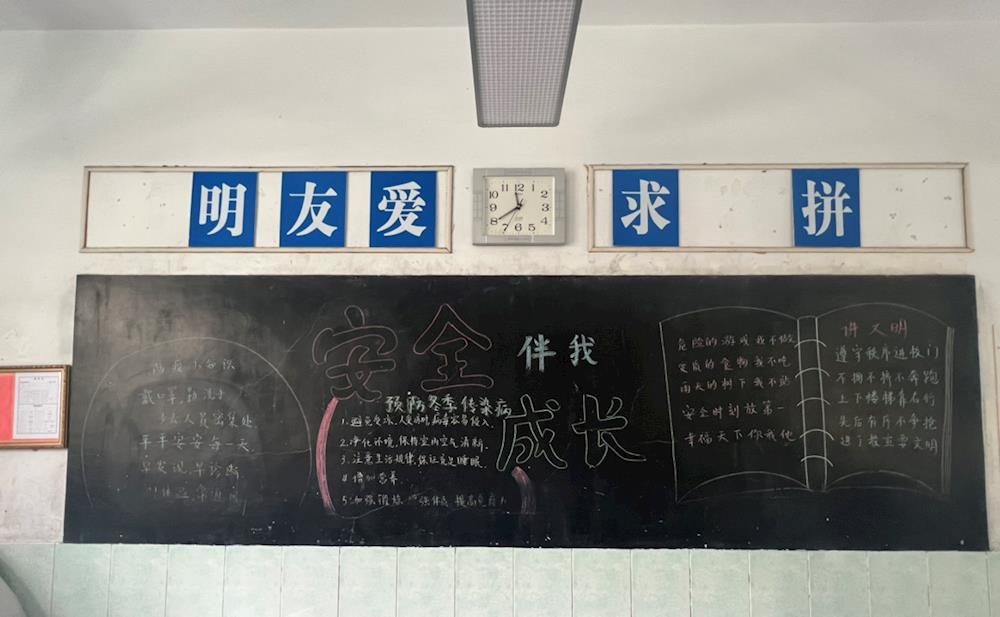 明 友 爱
求 拼
12 1 2 3 4 5 6 7 8 9 10 11
安全
伴我
成长
防疫小知识
戴口罩,勤洗手
人员密集处
平平安安每一天
早发现,早诊断
预防冬季传染病
1.避免受凉,人受凉时,病毒容易侵入.
2.净化环境,保持室内空气清新.
3.注意生活规律,保证充足睡眠.
4.增加营养
5.加强锻炼 强体质 提高免疫力
危险的游戏我不做
变质的食物我不吃
雨天的树下我不站
安全时刻放第一
幸福天下你我他
讲文明
遵守秩序进校门
不拥不挤不奔跑
上下楼梯靠右行
先后有序不争抢
进了教室要文明